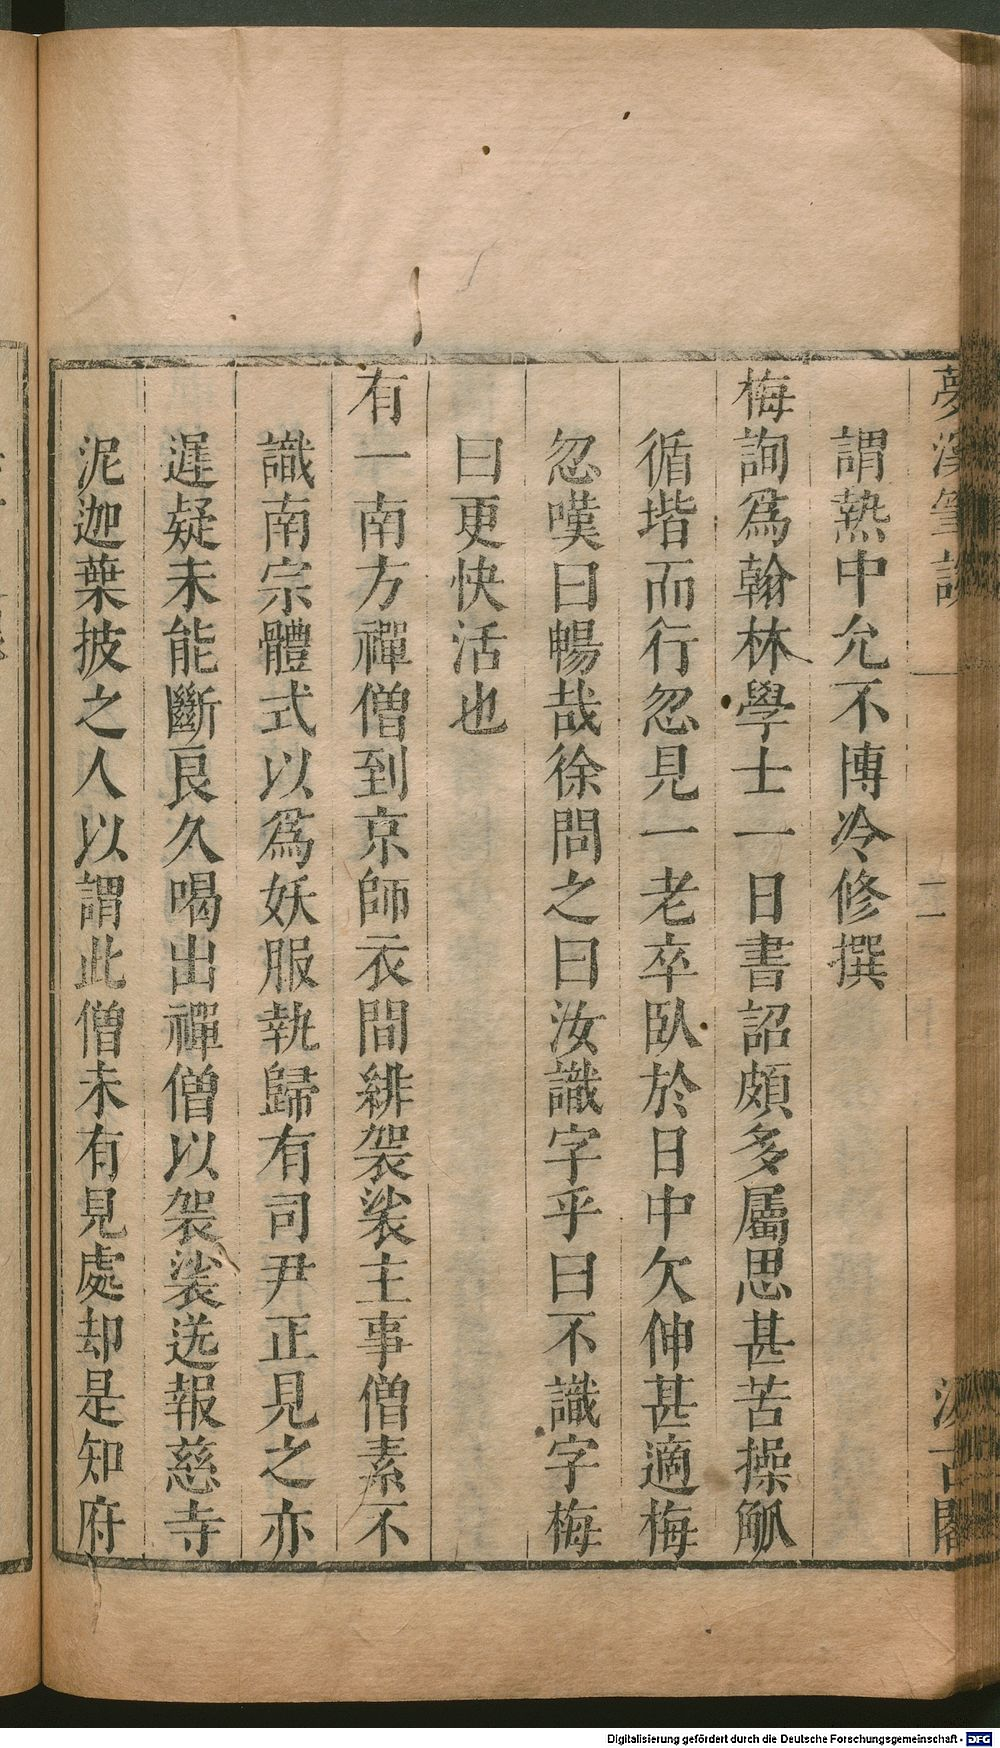 夢溪筆談 二 汲古閣
謂熱中允不博冷修撰
梅詢爲翰林學士一日書詔頗多屬思甚苦操觚
循堦而行忽見一老卒臥於日中欠伸甚適梅
忽嘆曰暢哉徐問之曰汝識字乎曰不識字梅
曰更快活也
有一南方禪僧到京師衣間緋袈裟主事僧素不
識南宗體式以爲妖服執歸有司尹正見之亦
遲疑未能斷良久喝出禪僧以袈裟送報慈寺
泥迦葉披之人以謂此僧未有見處却是知府
Digitalisierung gefördert durch die Deutsche Forschungsgemeinschaft - DFG